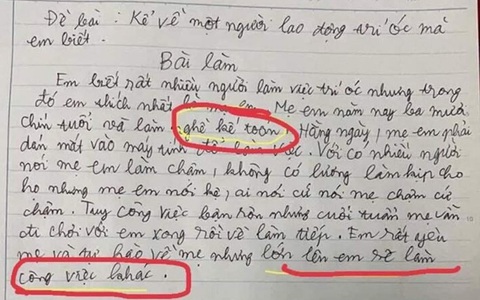 Đề bài : Kể về một người lao động trí óc mà
em biết.
Bài làm
Em biết rất nhiều người làm việc trí óc nhưng trong
đó em thích nhất là mẹ em. Mẹ em năm nay ba mươi
chín tuổi và làm nghề kế toán. Hằng ngày, mẹ em phải
dán mắt vào máy tính để làm việc. Với có nhiều người
nói mẹ em làm chậm, không có lương làm kịp cho
họ nhưng mẹ em mới kệ, ai nói cứ nói mẹ chậm cứ
chậm. Tuy công việc bận rộn nhưng cuối tuần mẹ vẫn
đi chơi với em xong rồi về làm tiếp. Em rất yêu
mẹ và tự hào về mẹ nhưng lớn lên em sẽ làm
công việc khác.